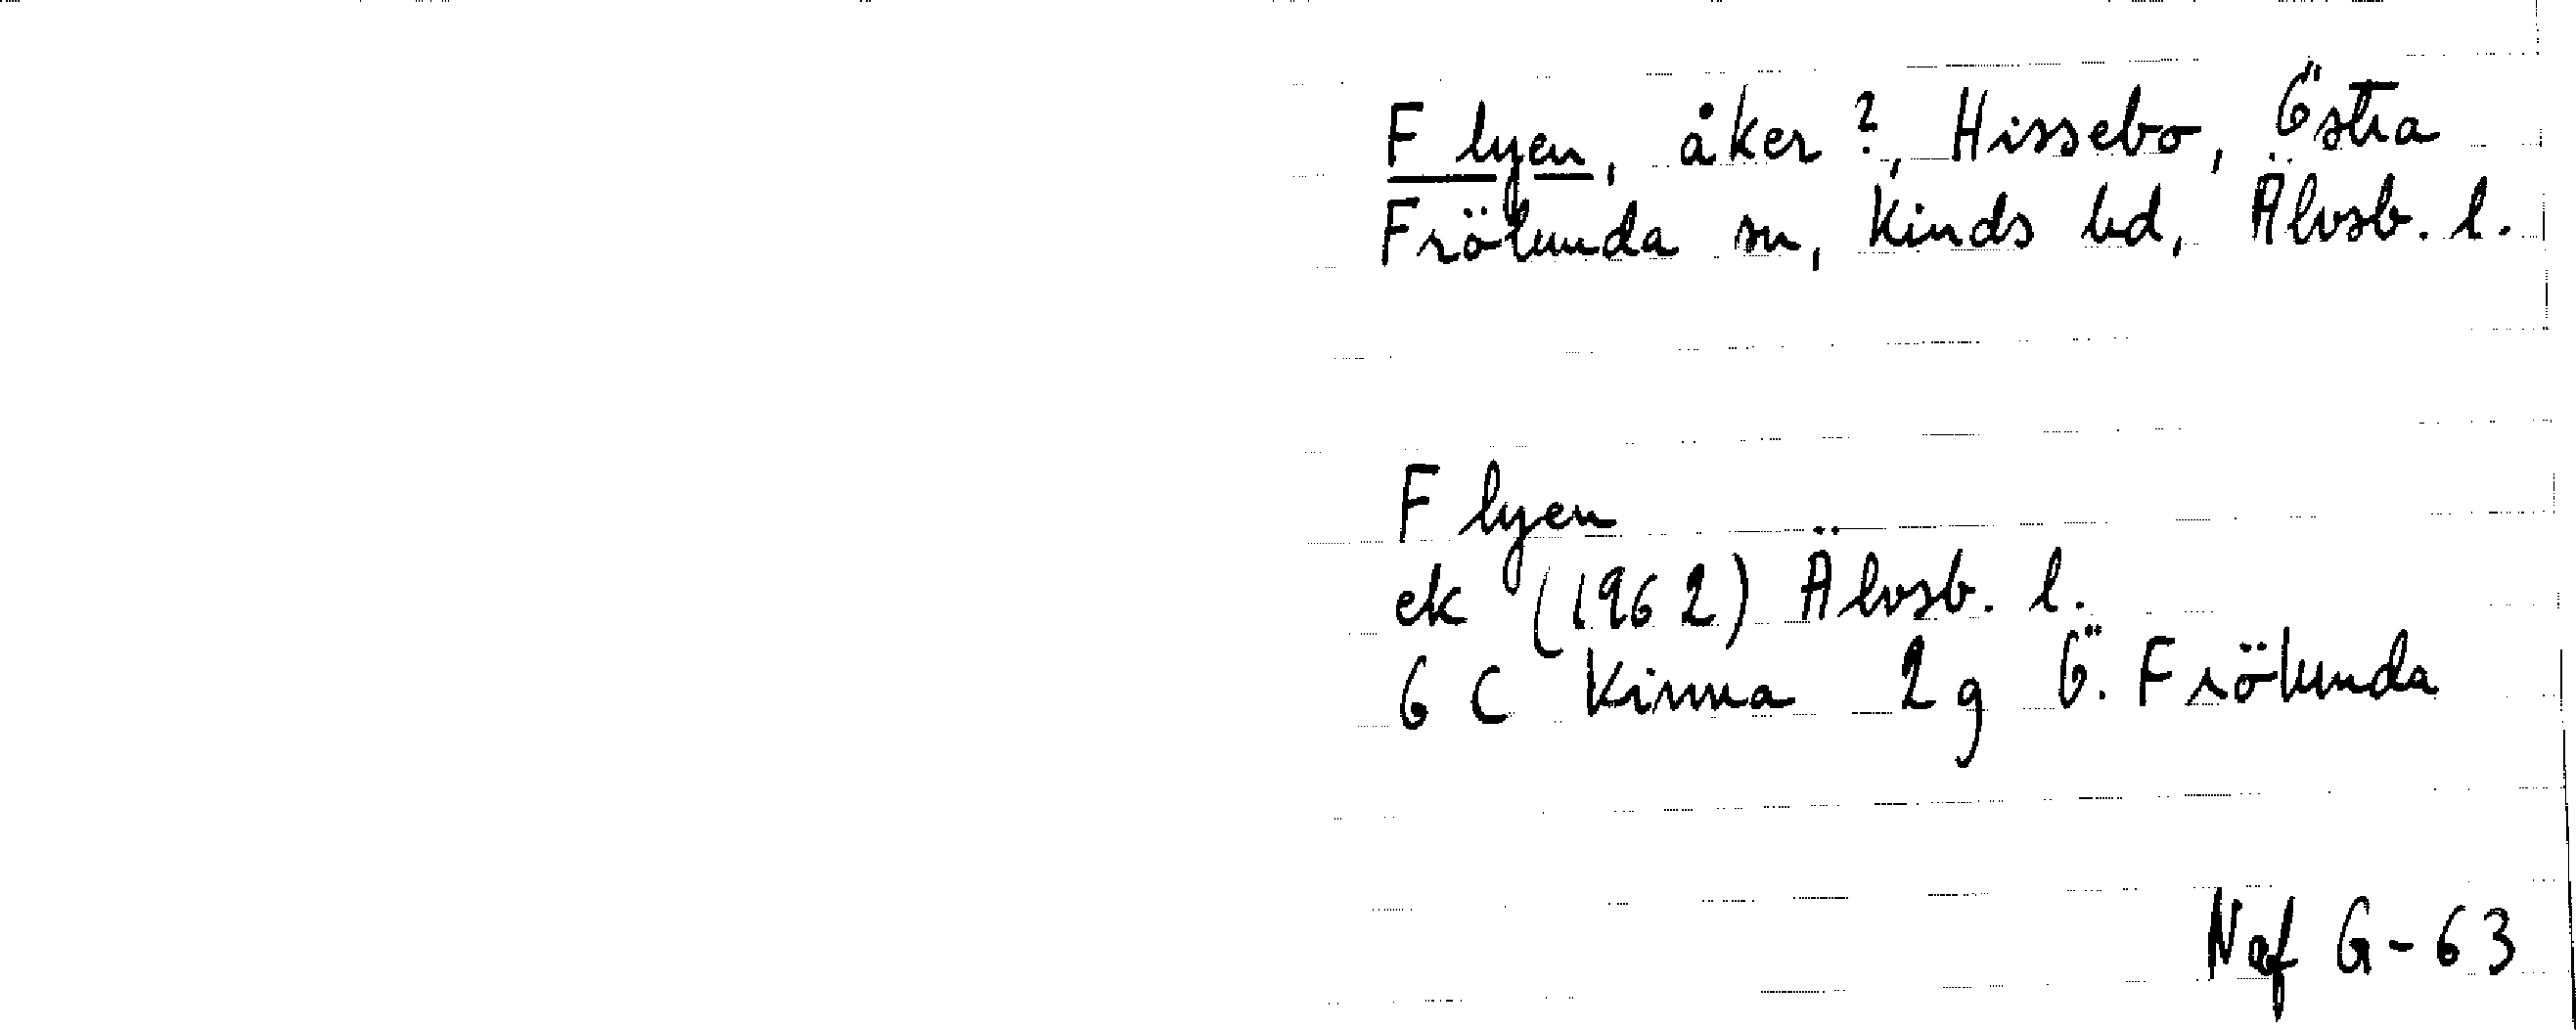 Flyen, åker?, Hissebo, Östra
Frölunda sn, Kinds hd, Älvsb. l.
Flyen
ek (1962) Älvsb. l.
6 C Kinna 2 g Ö. Frölunda
Naf G-63